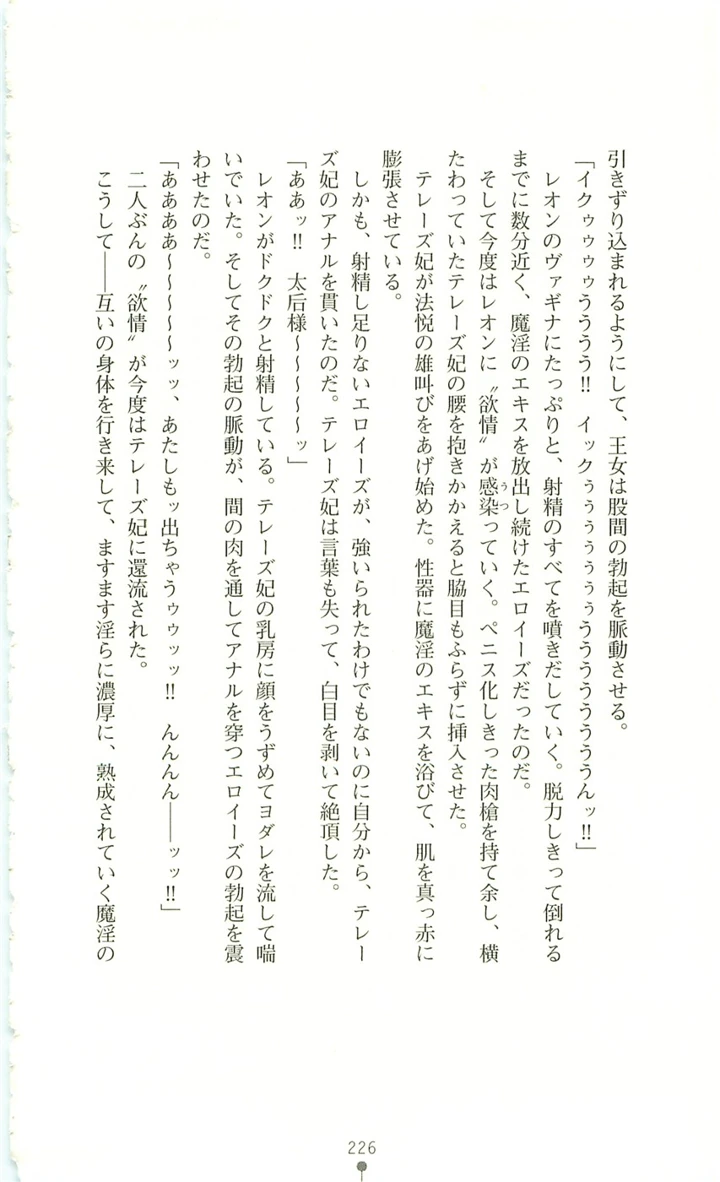 引きずり込まれるようにして、王女は股間の勃起を脈動させる。
「イクゥゥゥゥうううう!!　イックゥぅぅぅぅぅぅうううううううんッ!!」
レオンのヴァギナにたっぷりと、射精のすべてを噴きだしていく。脱力しきって倒れる
までに数分近く、魔淫のエキスを放出し続けたエロイーズだったのだ。
そして今度はレオンに〝欲情〟が感染っていく。ペニス化しきった肉槍を持て余し、横
たわっていたテレーズ妃の腰を抱きかかえると脇目もふらずに挿入させた。
テレーズ妃が法悦の雄叫びをあげ始めた。性器に魔淫のエキスを浴びて、肌を真っ赤に
膨張させている。
しかも、射精し足りないエロイーズが、強いられたわけでもないのに自分から、テレー
ズ妃のアナルを貫いたのだ。テレーズ妃は言葉も失って、白目を剥いて絶頂した。
「ああッ!!　太后様～～～～～ッ」
レオンがドクドクと射精している。テレーズ妃の乳房に顔をうずめてヨダレを流して喘
いでいた。そしてその勃起の脈動が、間の肉を通してアナルを穿つエロイーズの勃起を震
わせたのだ。
「ああああ～～～～～ッッ、あたしもッ出ちゃうゥゥッッ!!　んんんん――ッッ!!」
二人ぶんの〝欲情〟が今度はテレーズ妃に還流された。
こうして――互いの身体を行き来して、ますます淫らに濃厚に、熟成されていく魔淫の
226